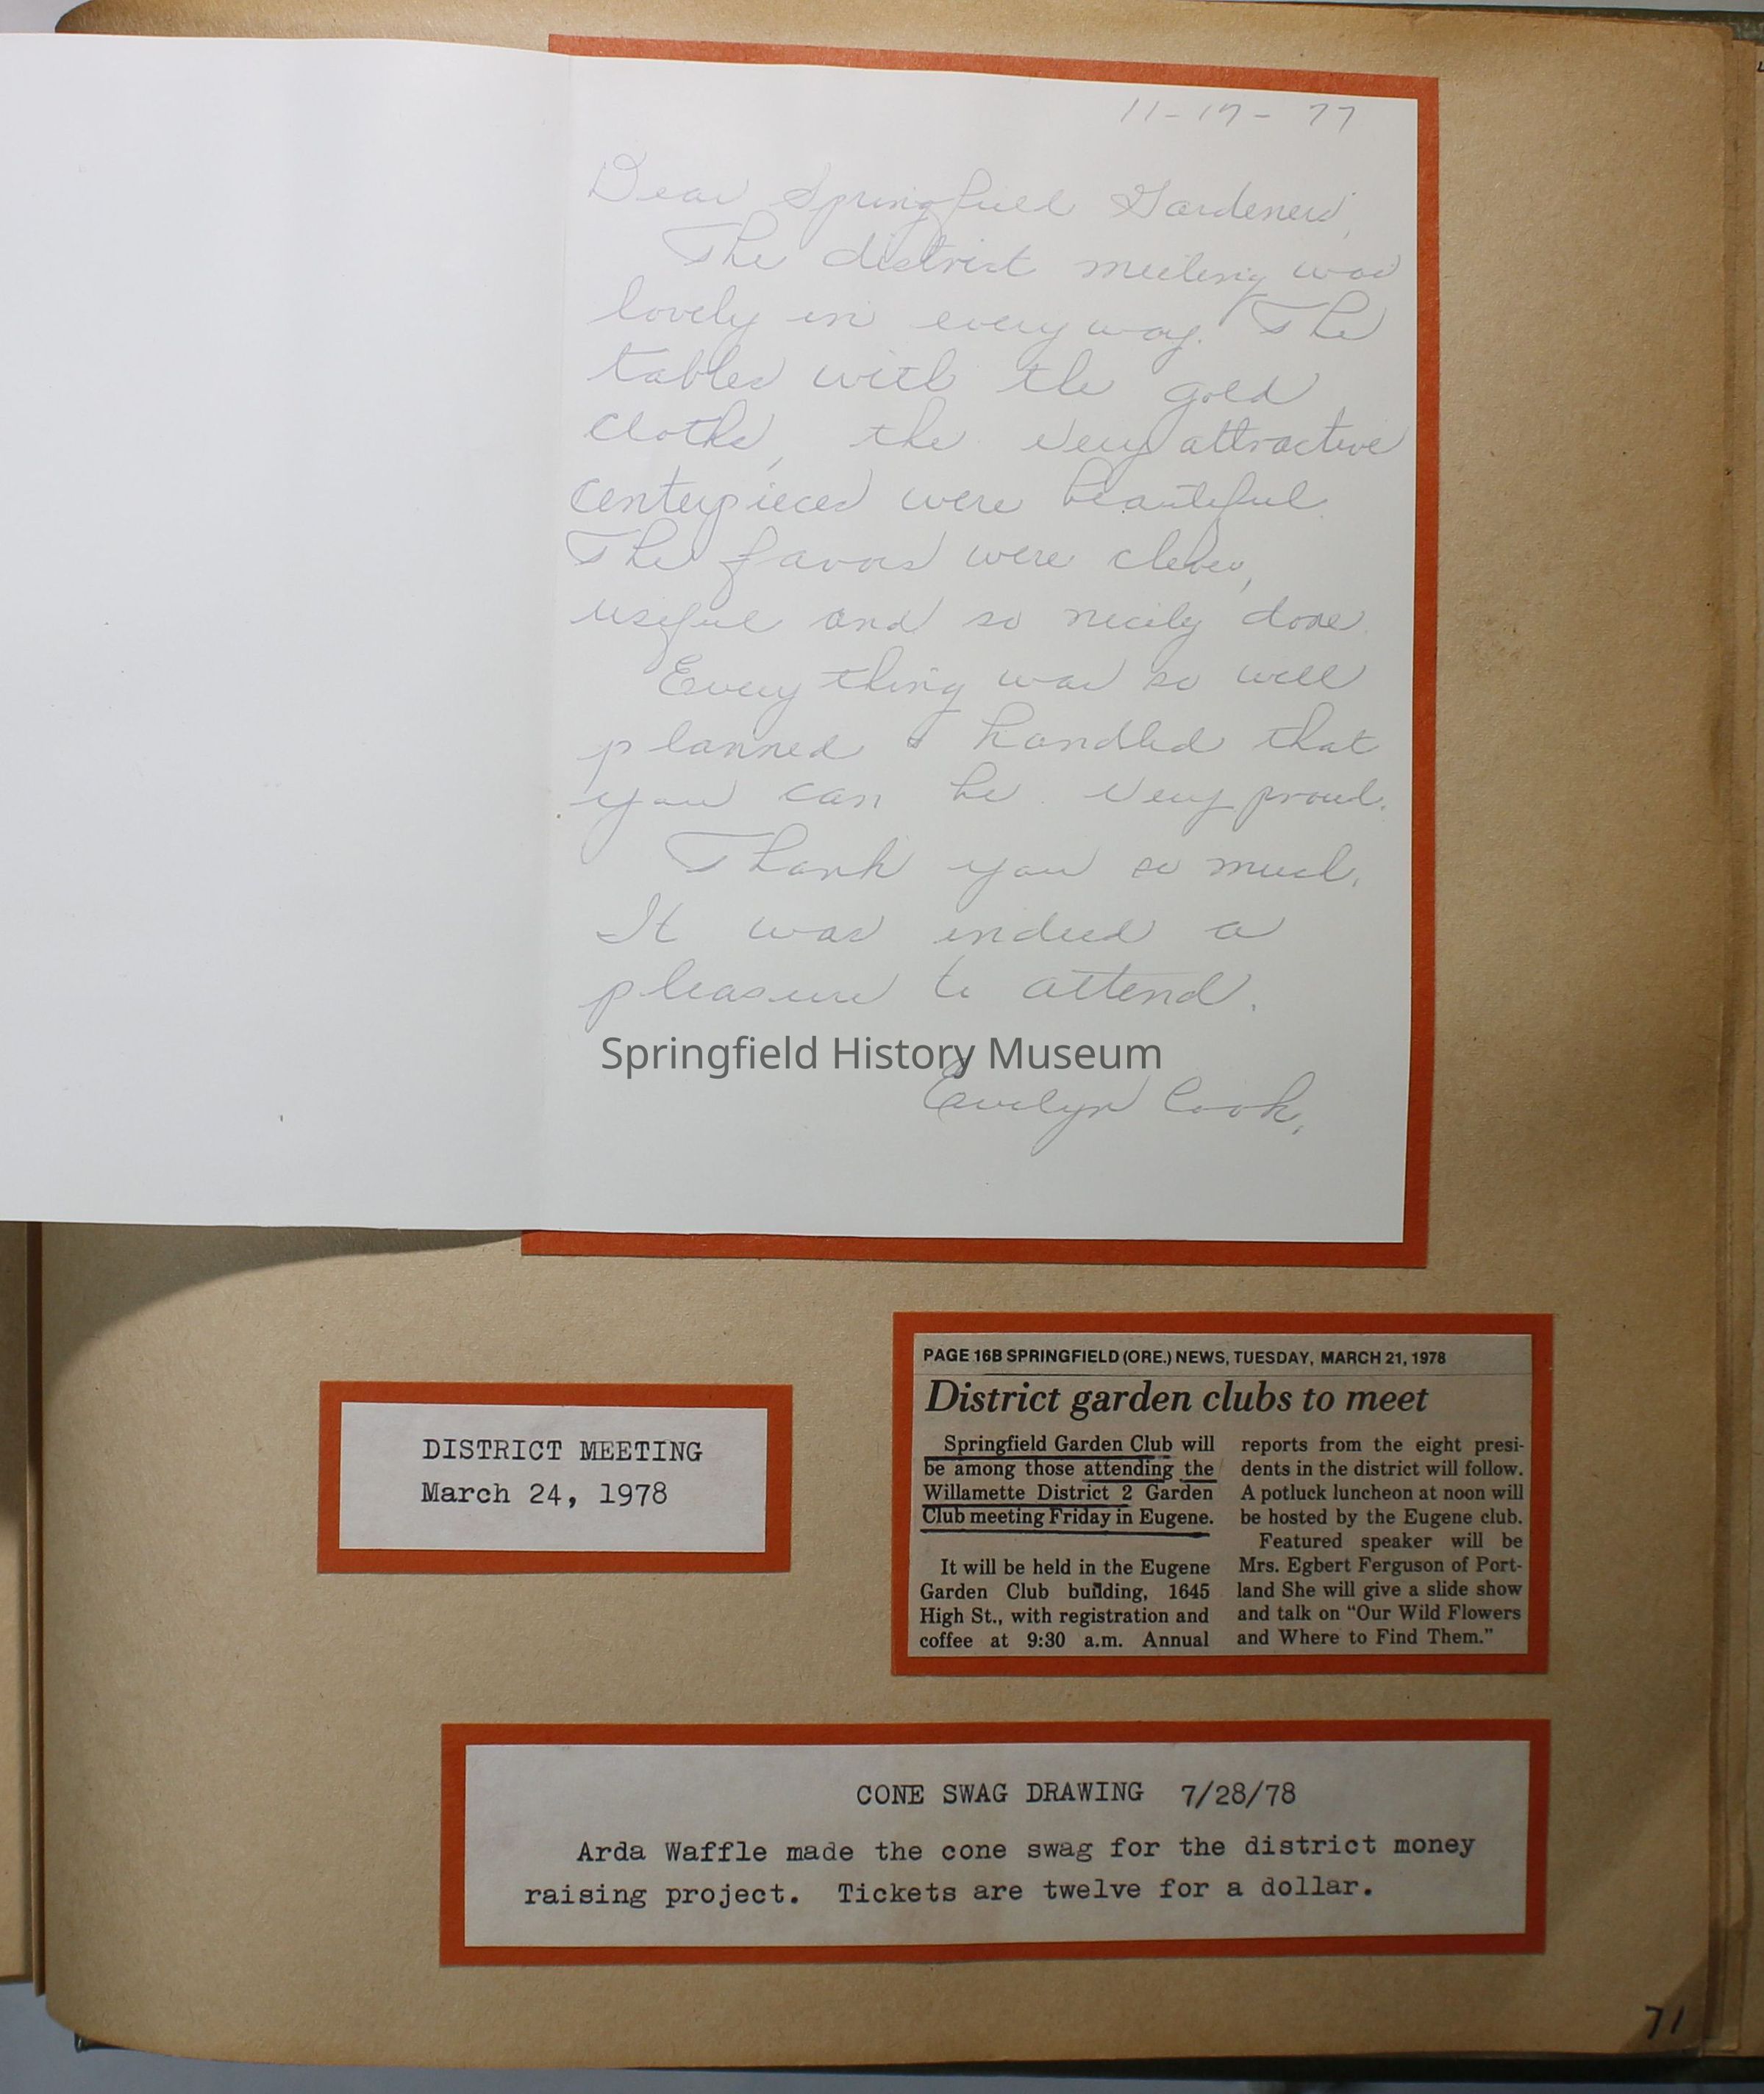 11-19-77
Dear Springfield Gardeners,
The district meeting was
lovely in every way. The
tables with the gold
cloths, the very attractive
centerpieces were beautiful.
The favors were clever,
useful and so nicely done.
Every thing was so well
planned & handled that
you can be very proud.
Thank you so much.
It was indeed a
pleasure to attend.
Springfield History Museum
Evelyn Cook,
DISTRICT MEETING
March 24, 1978
PAGE 16B SPRINGFIELD (ORE.) NEWS, TUESDAY, MARCH 21, 1978
District garden clubs to meet
Springfield Garden Club will
be among those attending the
Willamette District 2 Garden
Club meeting Friday in Eugene.
It will be held in the Eugene
Garden Club building, 1645
High St., with registration and
coffee at 9:30 a.m. Annual
reports from the eight presi-
dents in the district will follow.
A potluck luncheon at noon will
be hosted by the Eugene club.
Featured speaker will be
Mrs. Egbert Ferguson of Port-
land She will give a slide show
and talk on "Our Wild Flowers
and Where to Find Them."
CONE SWAG DRAWING 7/28/78
Arda Waffle made the cone swag for the district money
raising project. Tickets are twelve for a dollar.
71